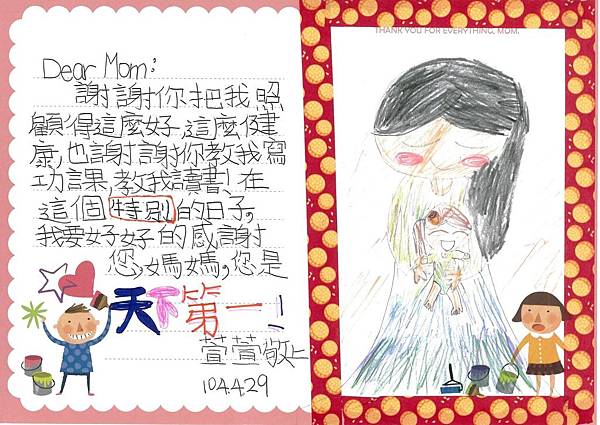 Dear Mom:
謝謝你把我照
顧得這麼好,這麼健
康,也謝謝你教我寫
功課,教我讀書!在
這個特別的日子,
我要好好的感謝
您,媽媽,您是
天下第一!
萱萱敬上
104.4.29
THANK YOU FOR EVERYTHING, MOM.